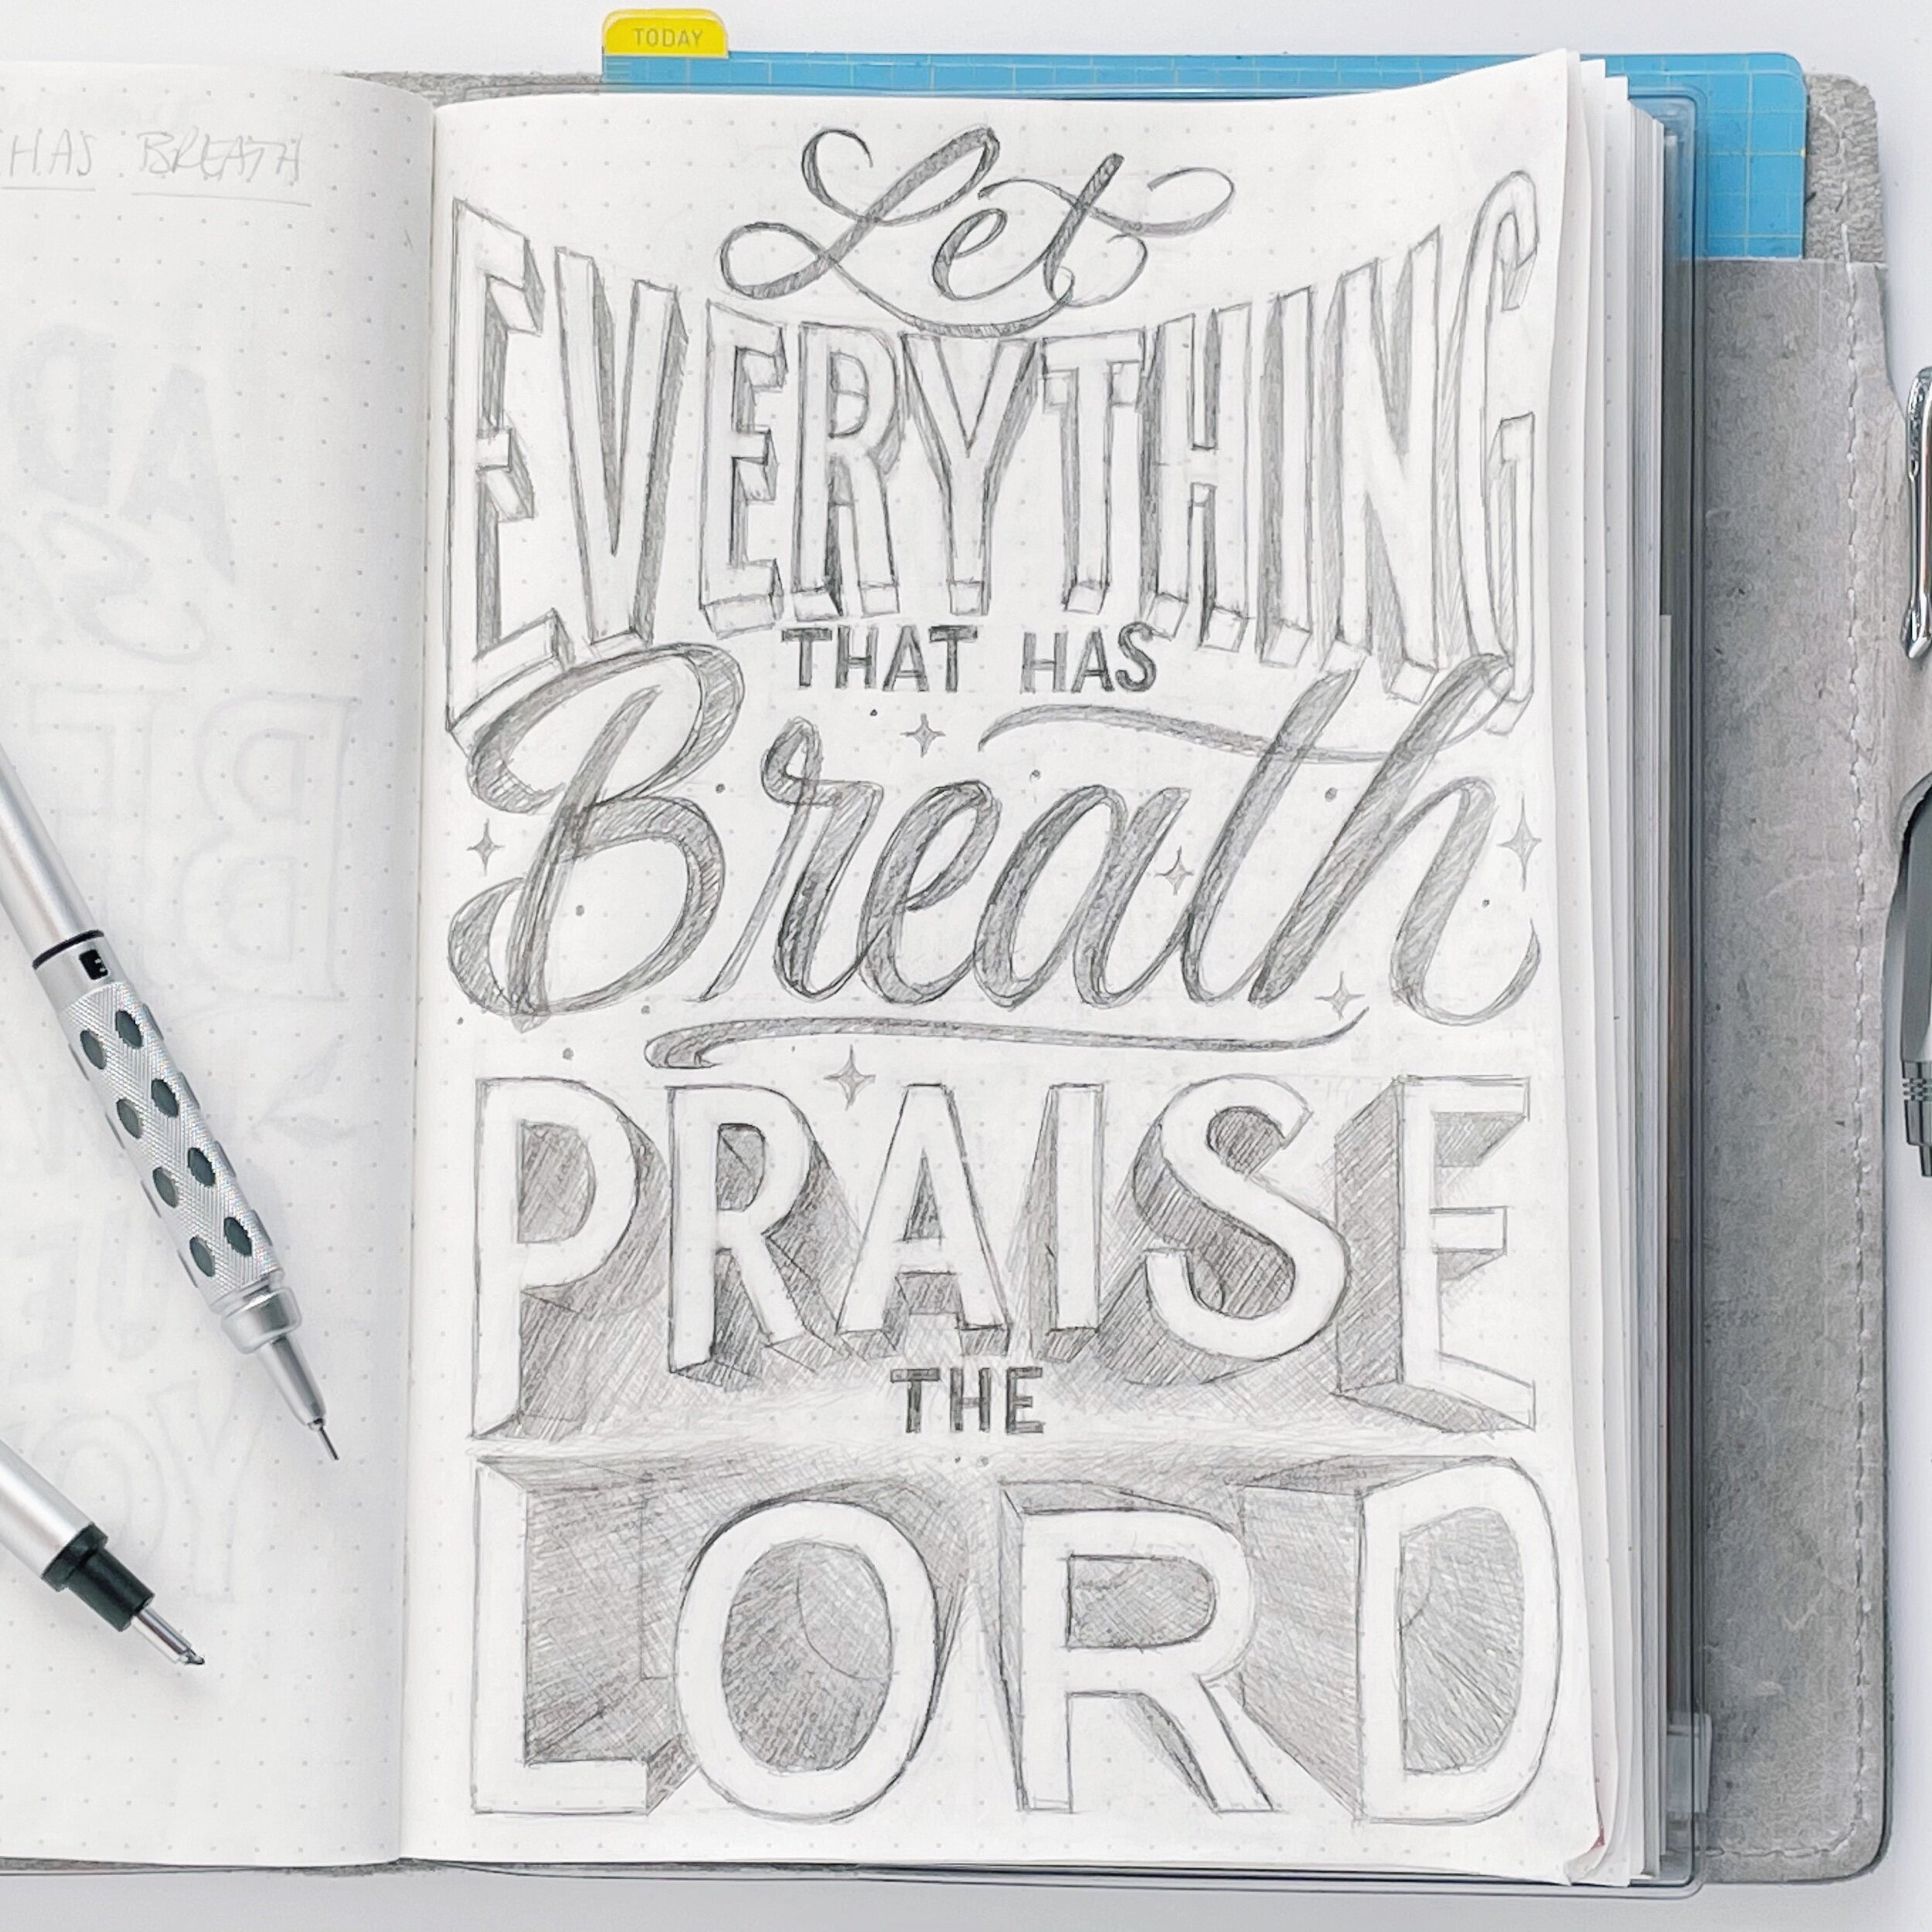 TODAY
HAS BREATH
Let
EVERYTHING
THAT HAS
Breath
PRAISE
THE
LORD